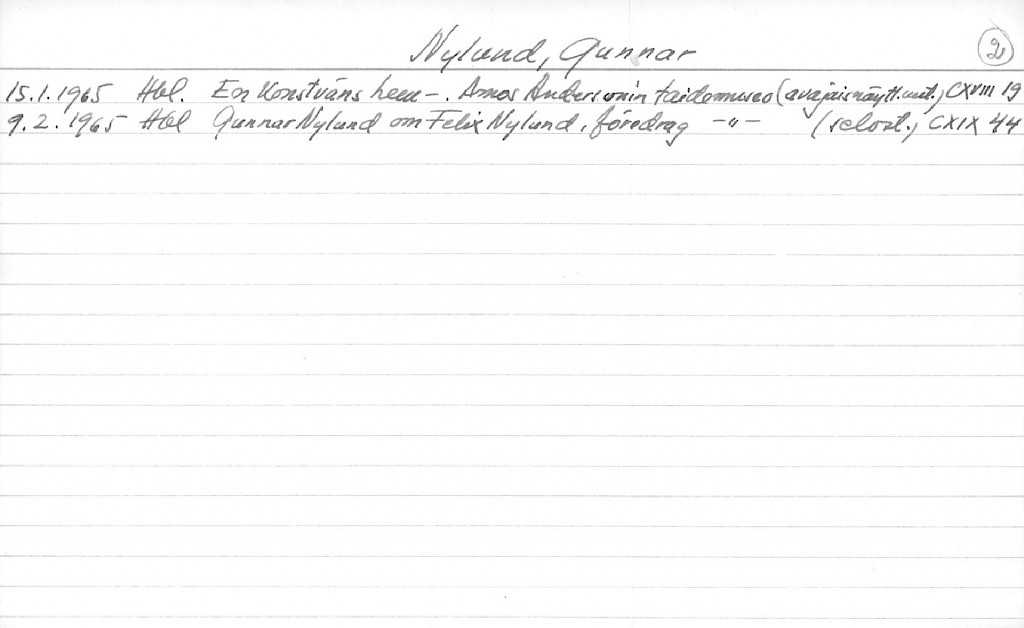 Nylund, Gunnar 2
15.1.1965 Hbl. En konstväns hem -. Amos Andersonin taidemuseo (avajaisnäytt. mit.) CXVIII 19
9.2.1965 Hbl Gunnar Nylund om Felix Nylund, föredrag -"- (selost.) CXIX 44